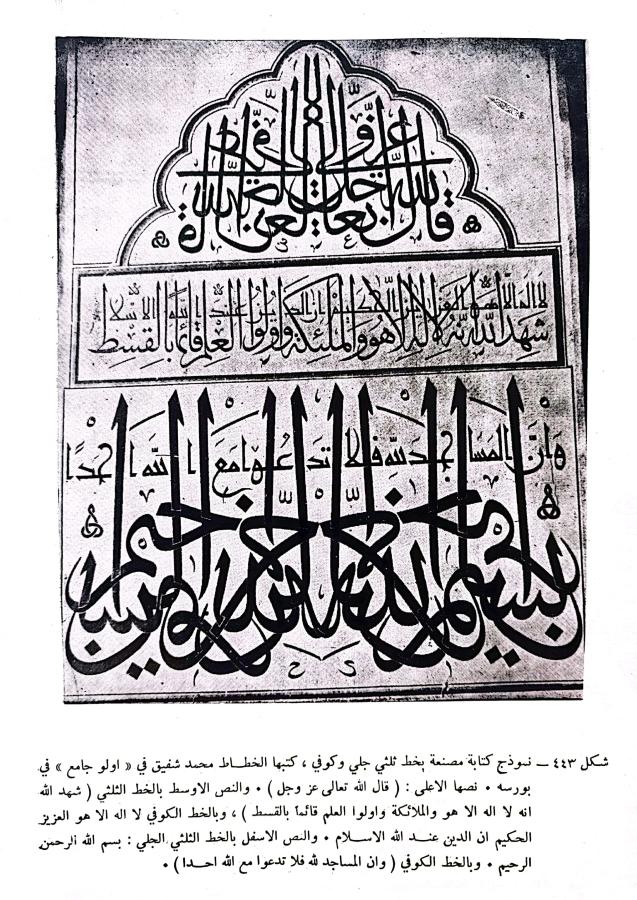 قال الله تعالى عز وجل
لا اله الا هو العزيز الحكيم ان الدين عند الله الاسلام
شهد الله انه لا اله الا هو والملئكة واولوا العلم قائما بالقسط
وان المساجد لله فلا تدعوا مع الله احدا
بسم الله الرحمن الرحيم
شكل ٤٤٣ ــ نموذج كتابة مصنعة بخط ثلثي جلي وكوفي ، كتبها الخطاط محمد شفيق في « اولو جامع » في
بورسه • نصها الاعلى : ( قال الله تعالى عز وجل ) • والنص الاوسط بالخط الثلثي ( شهد الله
انه لا اله الا هو والملائكة واولوا العلم قائماً بالقسط ) ، وبالخط الكوفي لا اله الا هو العزيز
الحكيم ان الدين عند الله الاسلام • والنص الاسفل بالخط الثلثي الجلي : بسم الله الرحمن
الرحيم • وبالخط الكوفي ( وان المساجد لله فلا تدعوا مع الله احدا ) •